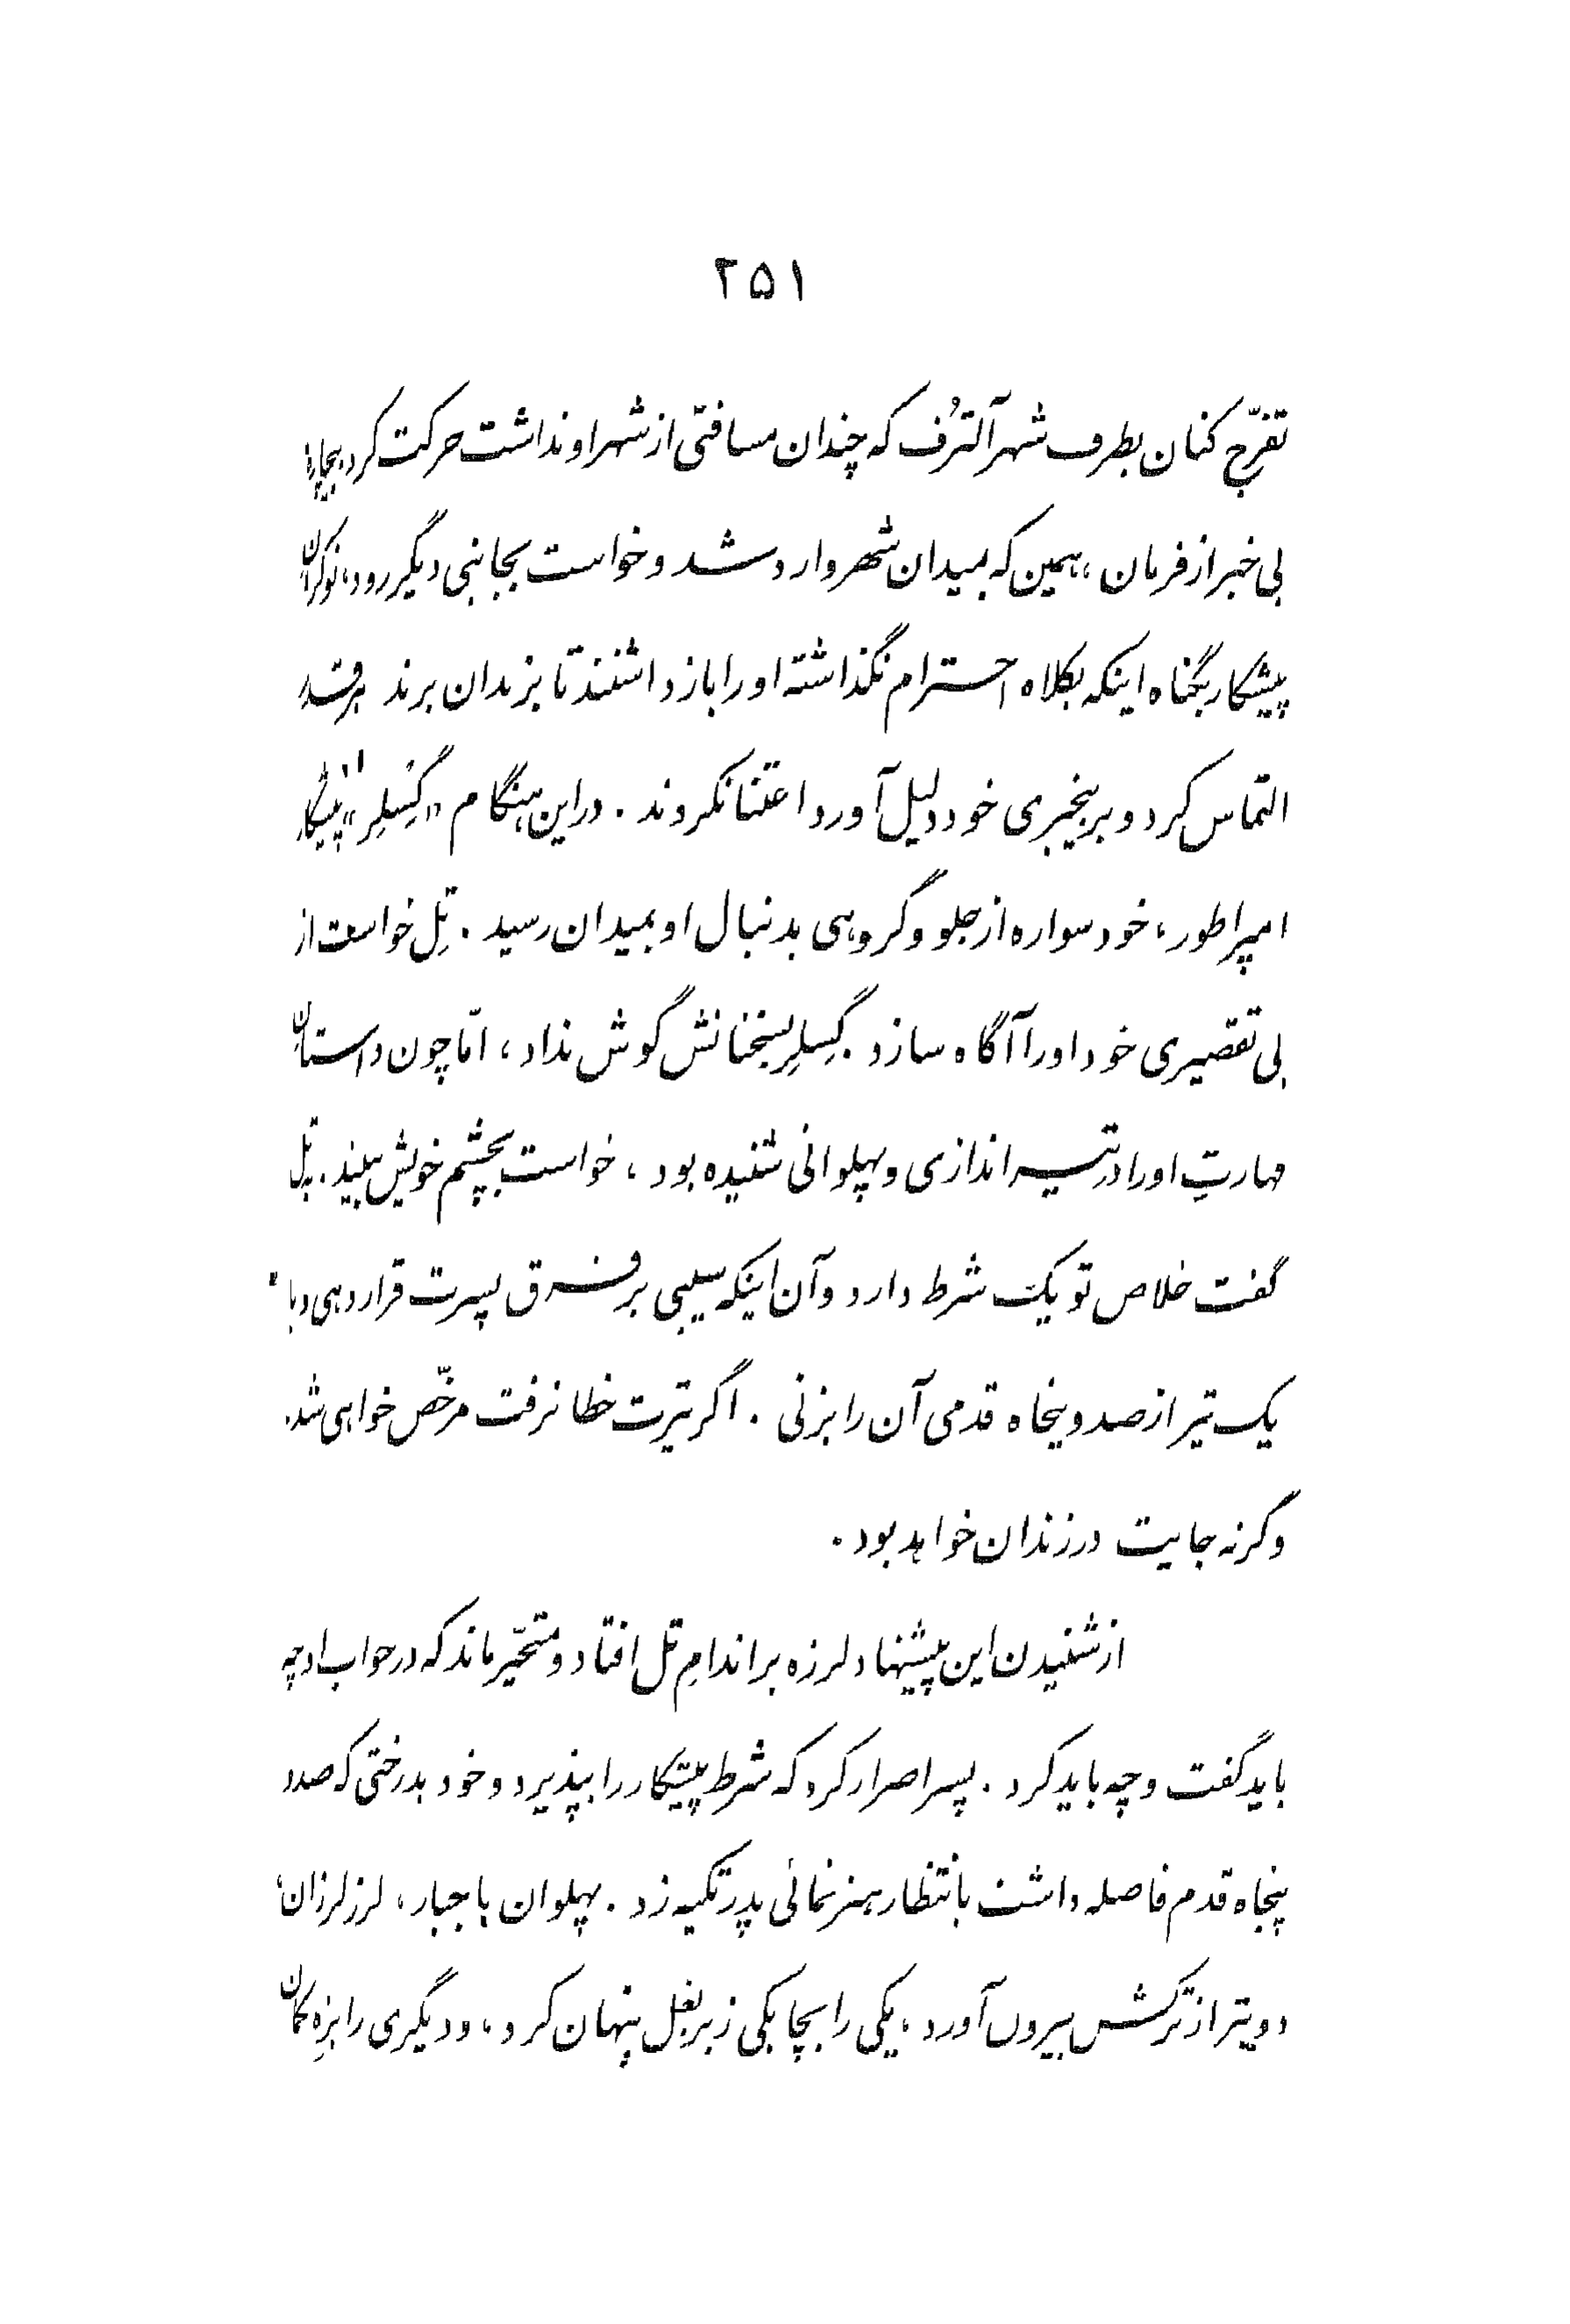 ۲۵۱
تفرّج کنان بطرف شهر آلترُف که چندان مسافتی از شهر او نداشت حرکت کرد. بیچارهٔ
بی خبر از فرمان ، همین که بمیدان شهر وارد شد و خواست بجانبی دیگر رود، نوکران
پیشکار بگناه اینکه بکلاه احترام نگذاشته او را بازداشتند تا بزندان برند هر قدر
التماس کرد و بر بیخبری خود دلیل آورد اعتنا نکردند . در این هنگام «گِسلِر» پیشکار
امپراطور ، خود سواره از جلو و گروهی بدنبال او بمیدان رسید . تِل خواست از
بی تقصیری خود او را آگاه سازد . گِسلِر بسخنانش گوش نداد ، امّا چون داستان
مهارتِ او را در تیراندازی و پهلوانی شنیده بود ، خواست بچشم خویش ببیند . بتِل
گفت خلاص تو یک شرط دارد و آن اینکه سیبی بر فرق پسرت قرار دهی و با
یک تیر از صد و پنجاه قدمی آن را بزنی . اگر تیرت خطا نرفت مرخّص خواهی شد.
وگرنه جایت در زندان خواهد بود .
از شنیدن این پیشنهاد لرزه بر اندامِ تل افتاد و متحیّر ماند که در جواب او چه
باید گفت و چه باید کرد . پسر اصرار کرد که شرط پیشکار را بپذیرد و خود بدرختی که صد و
پنجاه قدم فاصله داشت بانتظار هنرنمائی پدر تکیه زد . پهلوان باجبار ، لرز لرزان ،
دو تیر از ترکش بیرون آورد ، یکی را بچابکی زیر بغل پنهان کرد ، و دیگری را بزِهِ کمان